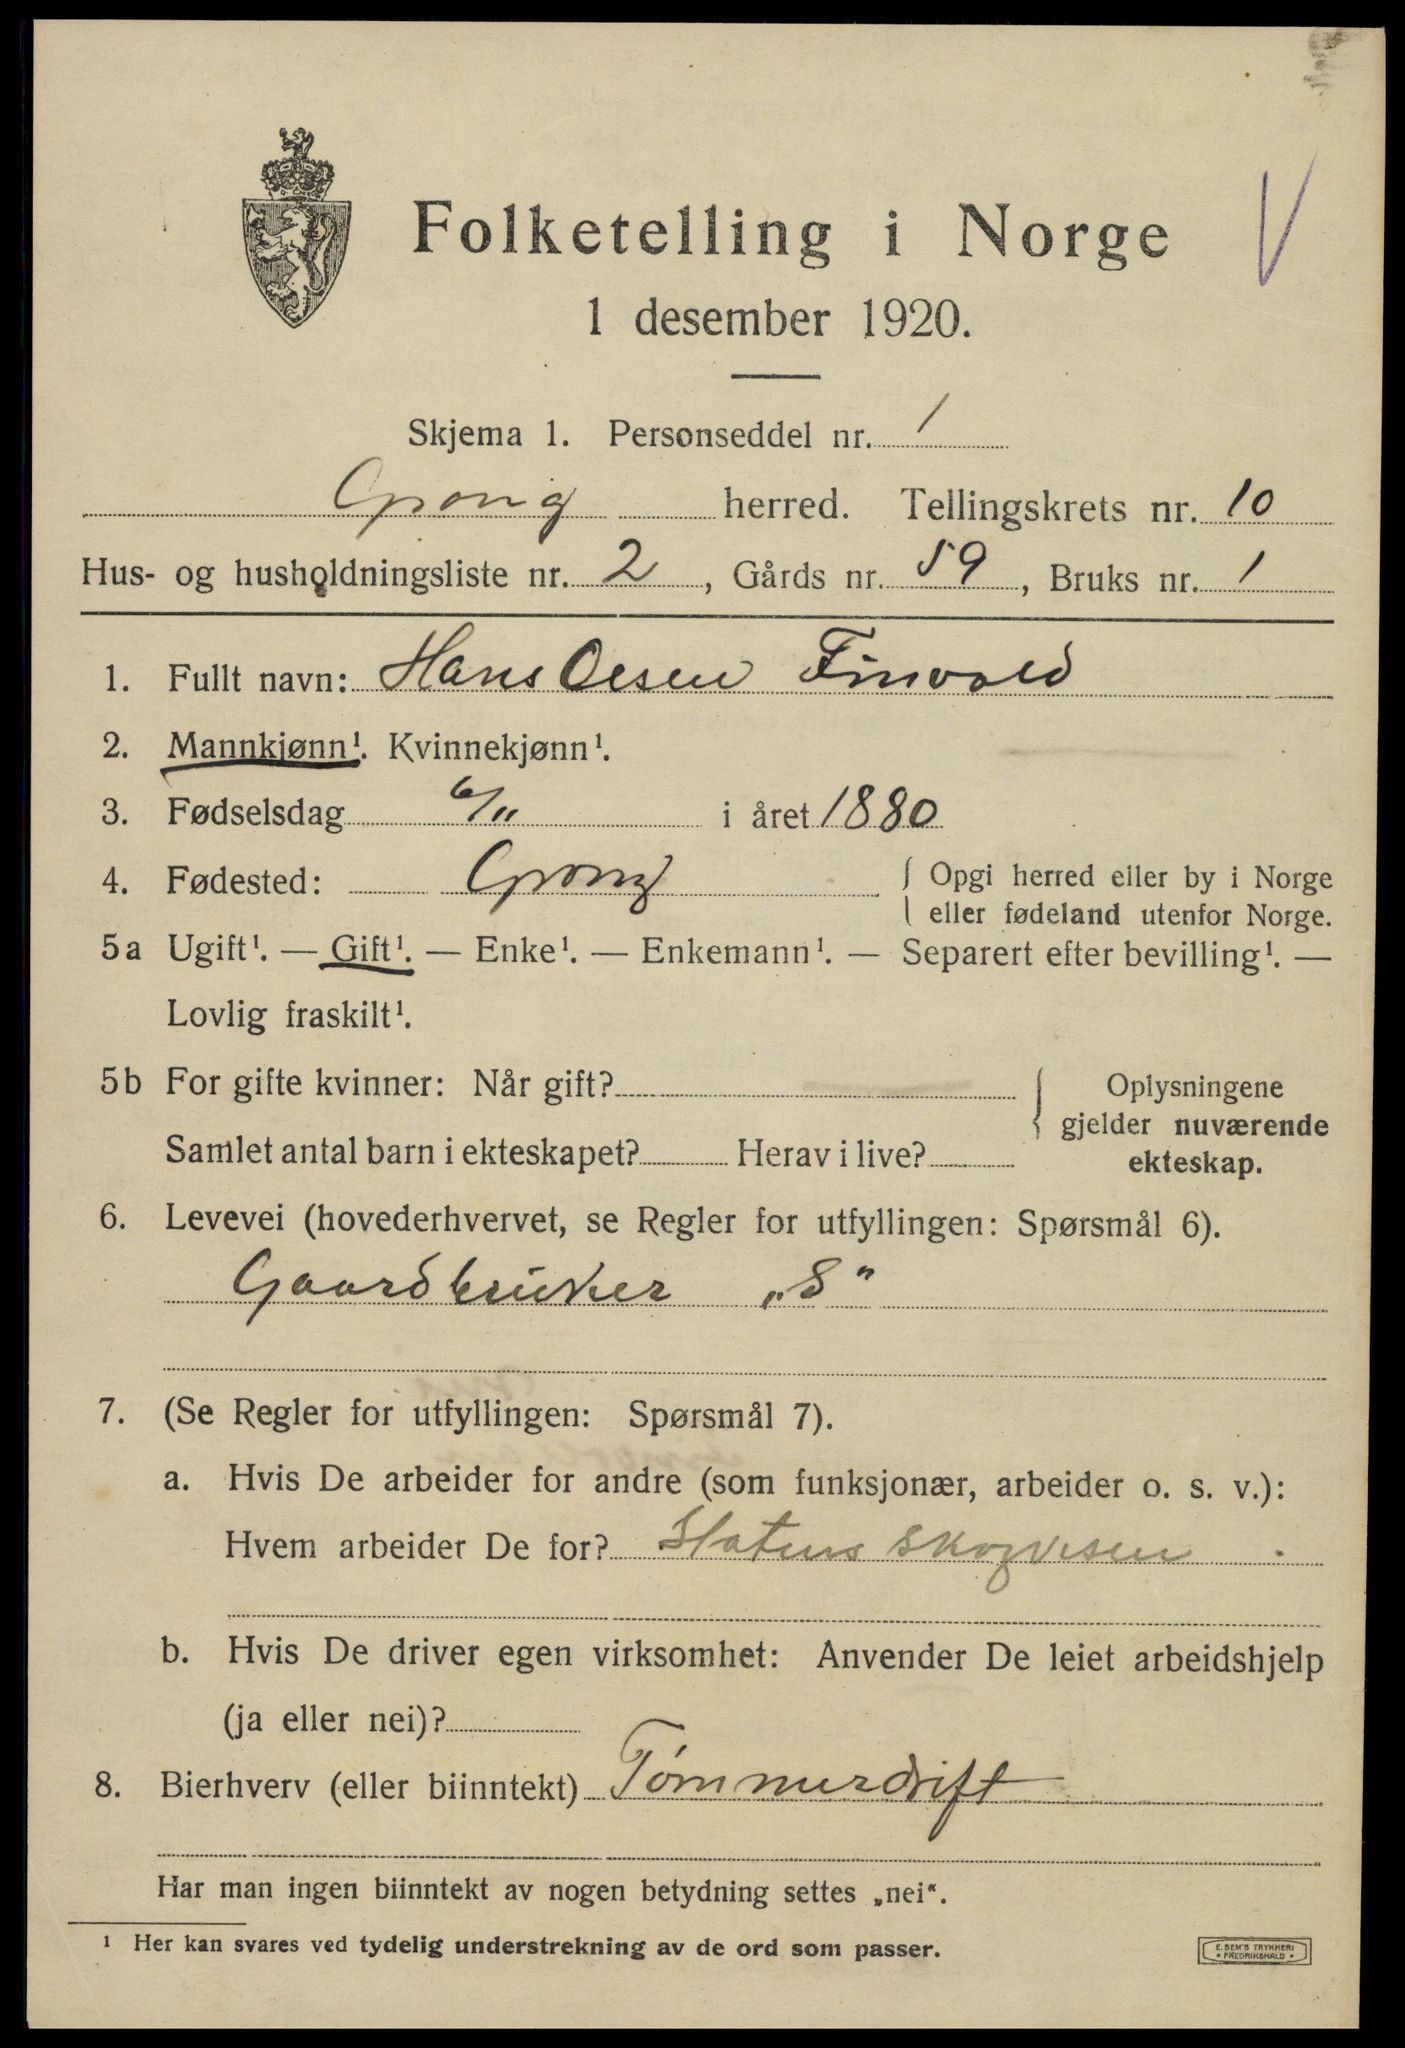 Folketelling i Norge
1 desember 1920.
Skjema 1. Personseddel nr. 1
Grong herred. Tellingskrets nr. 10
Hus- og husholdningsliste nr. 2, Gårds nr. 59, Bruks nr. 1
1. Fullt navn: Hans Olsen Finvold
2. Mannkjønn¹. Kvinnekjønn¹.
3. Fødselsdag 6/11 i året 1880
4. Fødested: Grong { Opgi herred eller by i Norge
eller fødeland utenfor Norge.
5a Ugift¹. — Gift¹. — Enke¹. — Enkemann¹. — Separert efter bevilling¹. —
Lovlig fraskilt¹.
5b For gifte kvinner: Når gift? { Oplysningene
gjelder nuværende
Samlet antal barn i ekteskapet? Herav i live? ekteskap.
6. Levevei (hovederhvervet, se Regler for utfyllingen: Spørsmål 6).
Gaardbruker „S"
7. (Se Regler for utfyllingen: Spørsmål 7).
a. Hvis De arbeider for andre (som funksjonær, arbeider o. s. v.):
Hvem arbeider De for? Statens Skogvesen
b. Hvis De driver egen virksomhet: Anvender De leiet arbeidshjelp
(ja eller nei)?
8. Bierhverv (eller biinntekt) Tømmerdrift
Har man ingen biinntekt av nogen betydning settes „nei".
¹ Her kan svares ved tydelig understrekning av de ord som passer.
E. SEM'S TRYKKERI
• FREDRIKSHALD •